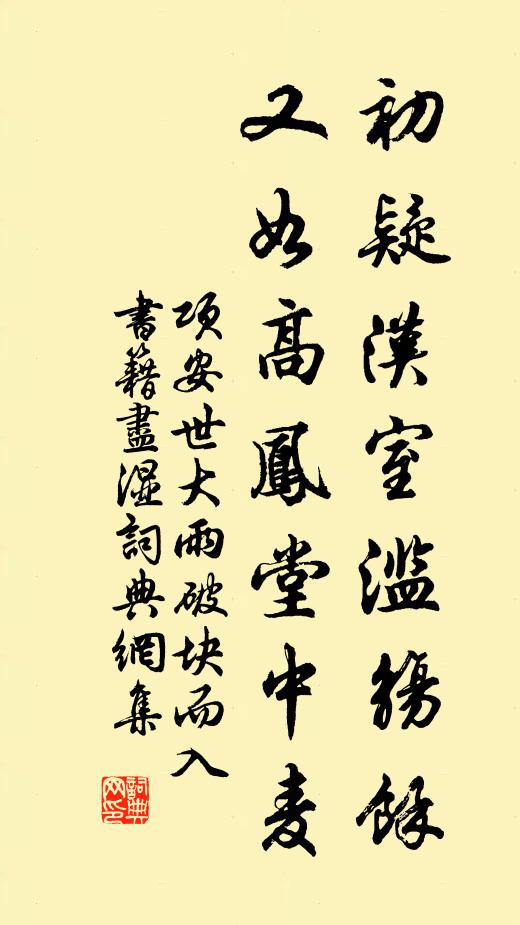 初疑漢室滥觴餘
又如高鳳堂中麦
項安世大雨破块而入
書籍盡濕詞典網集
詞典網印